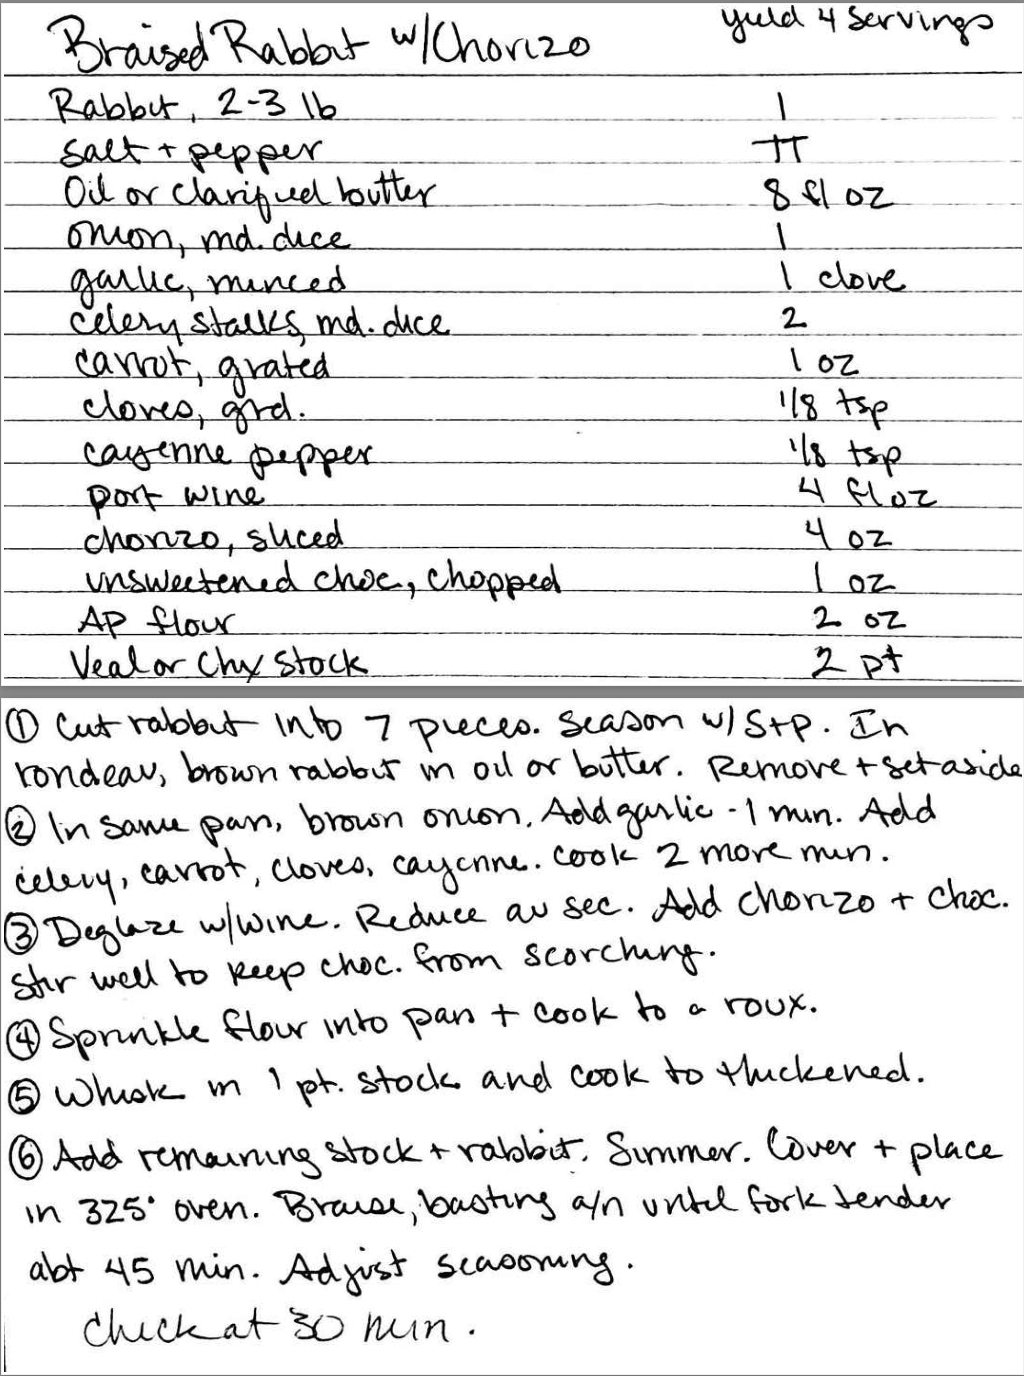 Braised Rabbit w/Chorizo yield 4 servings
Rabbit, 2-3 lb 1
salt + pepper TT
Oil or clarified butter 8 fl oz
onion, md. dice 1
garlic, minced 1 clove
celery stalks, md. dice 2
carrot, grated 1 oz
cloves, grd. 1/8 tsp
cayenne pepper 1/8 tsp
port wine 4 fl oz
chorizo, sliced 4 oz
unsweetened choc, chopped 1 oz
AP flour 2 oz
Veal or Chx Stock 2 pt
① Cut rabbit into 7 pieces. Season w/ S+P. In
rondeau, brown rabbit in oil or butter. Remove + set aside
② In same pan, brown onion. Add garlic - 1 min. Add
celery, carrot, cloves, cayenne. Cook 2 more min.
③ Deglaze w/wine. Reduce au sec. Add chorizo + choc.
Stir well to keep choc. from scorching.
④ Sprinkle flour into pan + cook to a roux.
⑤ Whisk in 1 pt. stock and cook to thickened.
⑥ Add remaining stock + rabbit. Simmer. Cover + place
in 325° oven. Braise, basting a/n until fork tender
abt 45 min. Adjust seasoning.
Check at 30 min.